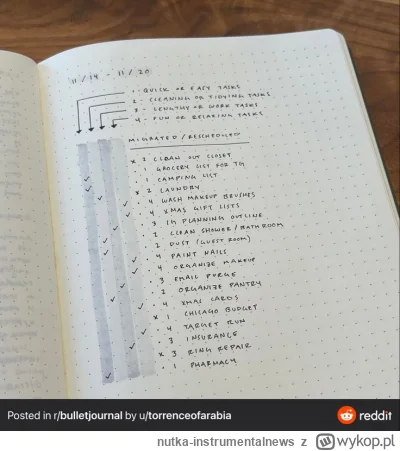 11/14 - 11/20
1 - QUICK OR EASY TASKS
2 - CLEANING OR TIDYING TASKS
3 - LENGTHY OR WORK TASKS
4 - FUN OR RELAXING TASKS
MIGRATED / RESCHEDULED
x 2 CLEAN OUT CLOSET
· 1 GROCERY LIST FOR TG
· 1 CAMPING LIST
x 2 LAUNDRY
· 4 WASH MAKEUP BRUSHES
· 4 XMAS GIFT LISTS
· 3 PLANNING OUTLINE
· 2 CLEAN SHOWER / BATHROOM
· 2 DUST (GUEST ROOM)
· 4 PAINT NAILS
· 4 ORGANIZE MAKEUP
· 3 EMAIL PURGE
· 2 ORGANIZE PANTRY
· 4 XMAS CARDS
x 1 CHICAGO BUDGET
· 4 TARGET RUN
· 3 INSURANCE
x 3 RING REPAIR
· 1 PHARMACY
Posted in r/bulletjournal by u/torrenceofarabia
reddit
nutka-instrumentalnews z wykop.pl